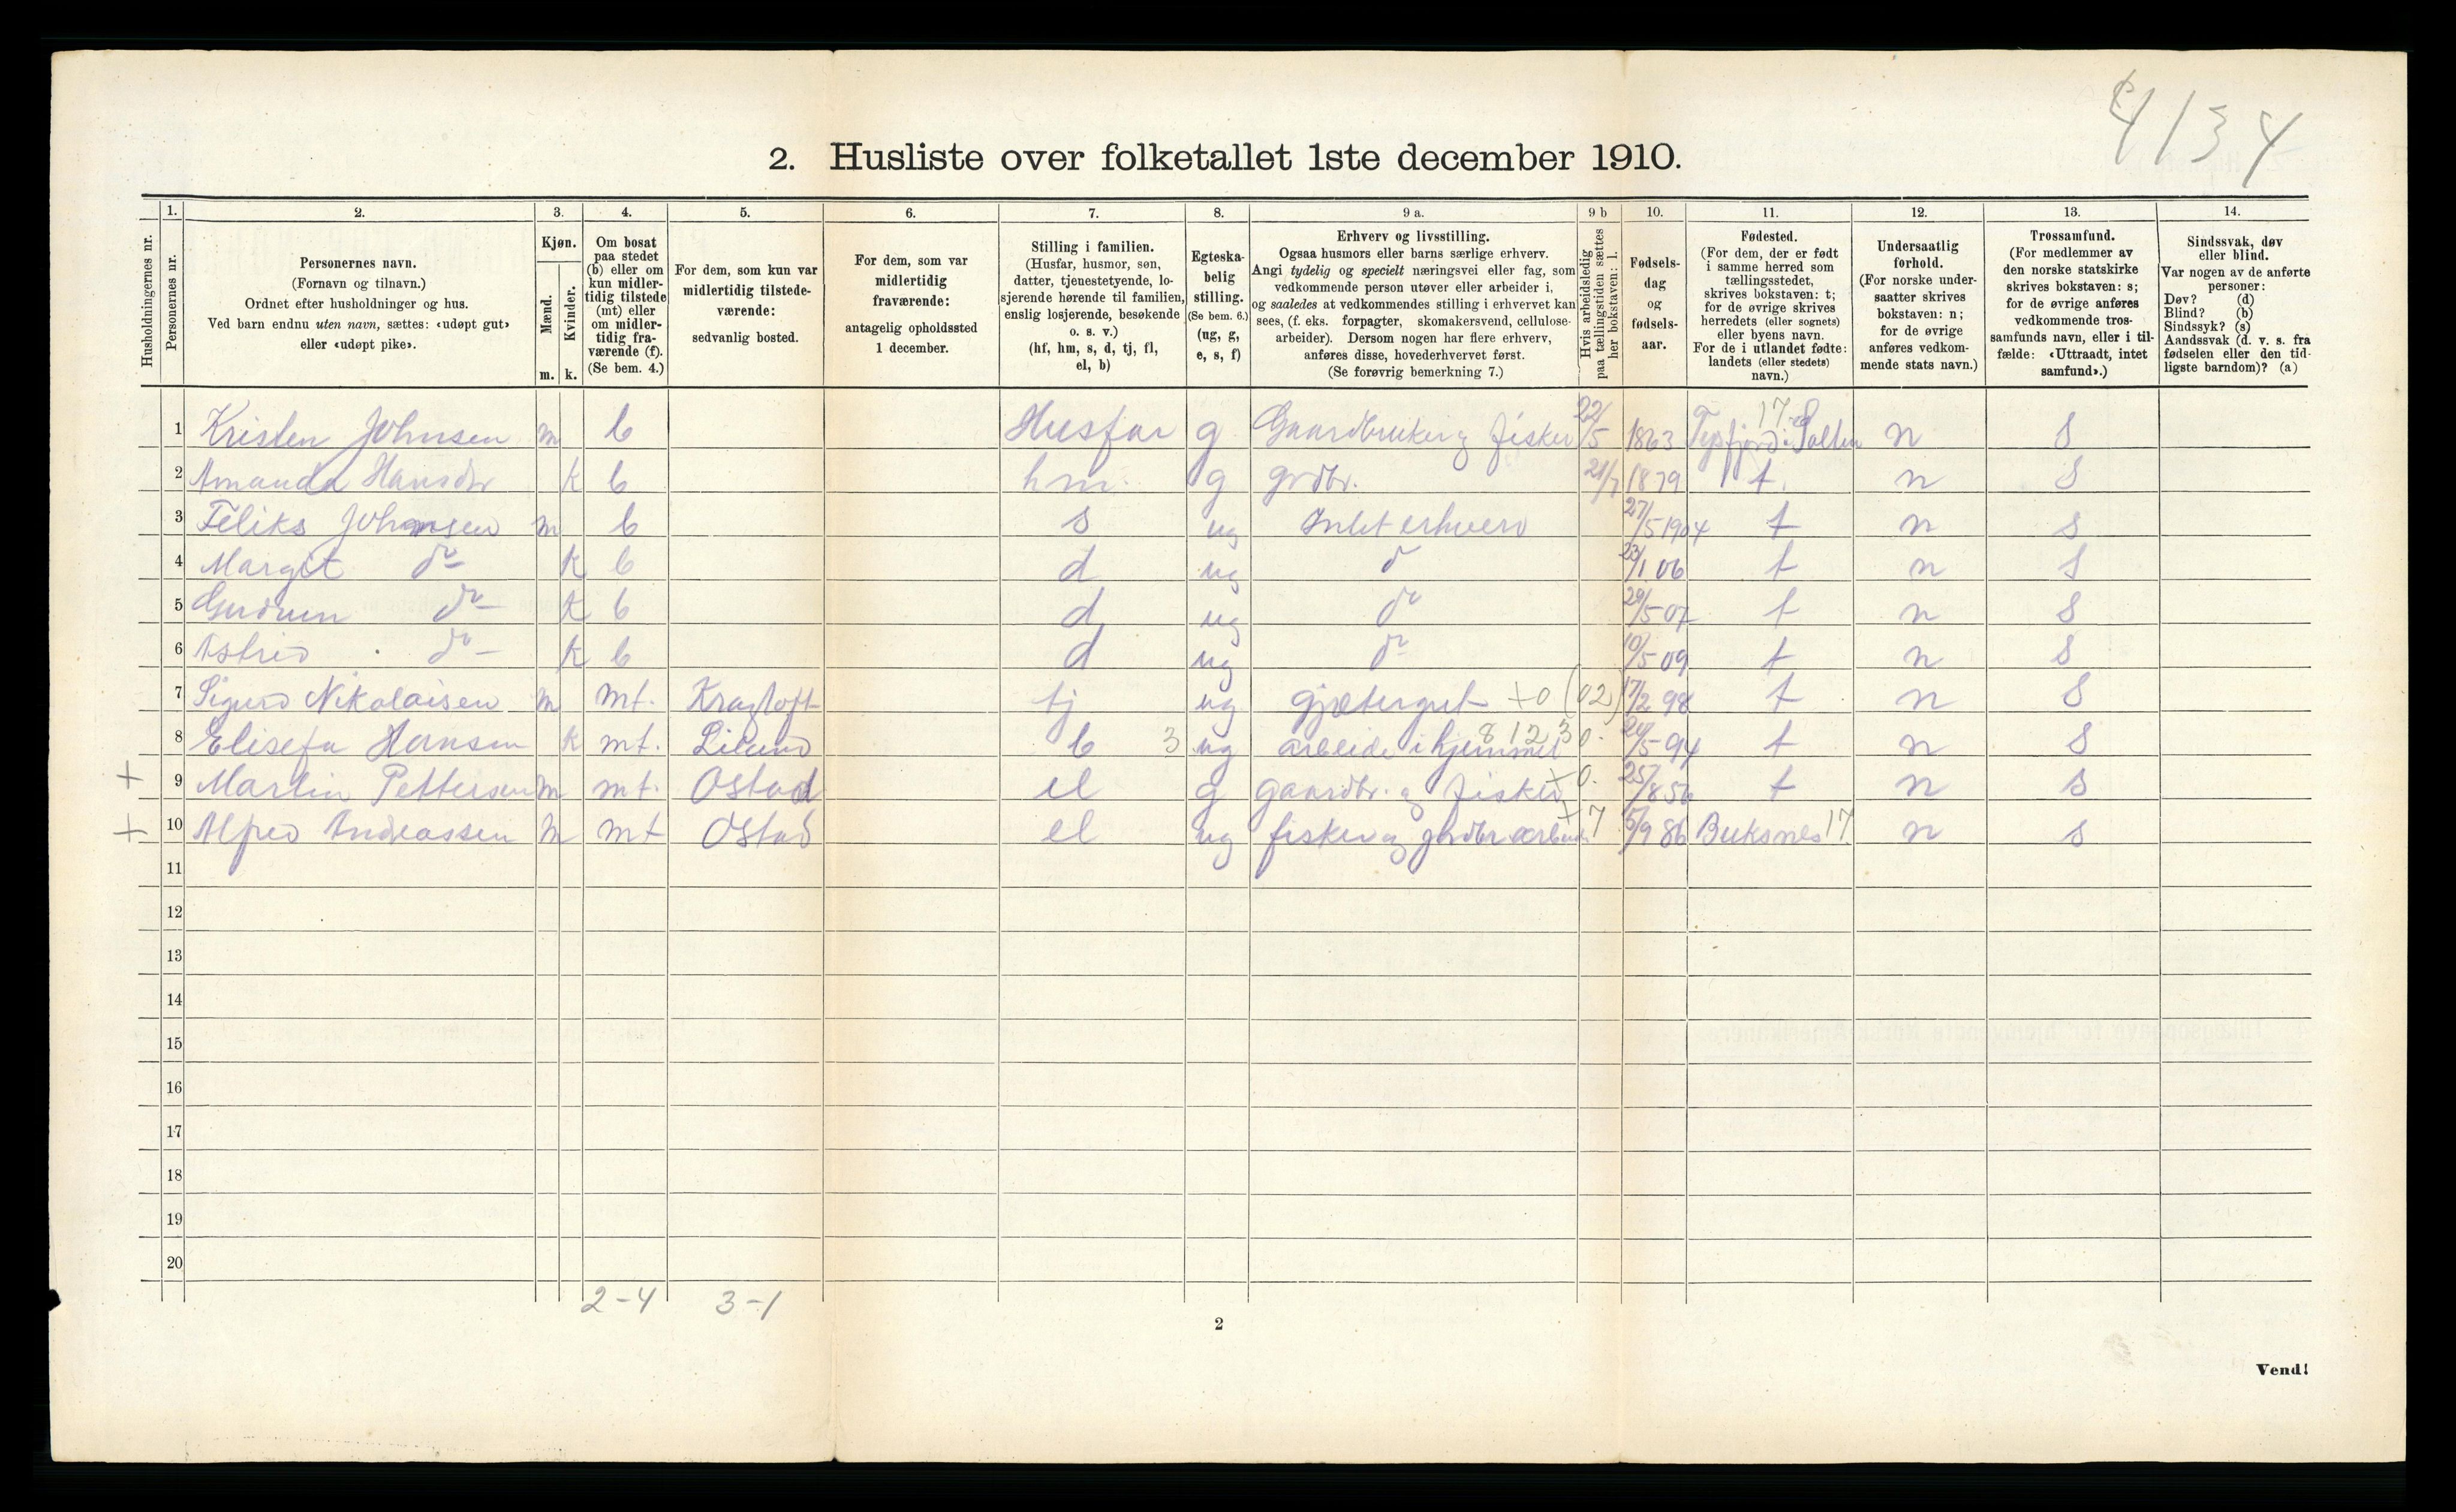 4134
2. Husliste over folketallet 1ste december 1910.
Husholdningernes nr.
1. Personernes nr.
2. Personernes navn. (Fornavn og tilnavn.) Ordnet efter husholdninger og hus. Ved barn endnu uten navn, sættes: «udøpt gut» eller «udøpt pike».
3. Kjøn. Mænd. m. Kvinder. k.
4. Om bosat paa stedet (b) eller om kun midler-tidig tilstede (mt) eller om midler-tidig fra-værende (f). (Se bem. 4.)
5. For dem, som kun var midlertidig tilstede-værende: sedvanlig bosted.
6. For dem, som var midlertidig fraværende: antagelig opholdssted 1 december.
7. Stilling i familien. (Husfar, husmor, søn, datter, tjenestetyende, lo-sjerende hørende til familien, enslig losjerende, besøkende o. s. v.) (hf, hm, s, d, tj, fl, el, b)
8. Egteska-belig stilling. (Se bem. 6.) (ug, g, e, s, f)
9 a. Erhverv og livsstilling. Ogsaa husmors eller barns særlige erhverv. Angi tydelig og specielt næringsvei eller fag, som vedkommende person utøver eller arbeider i, og saaledes at vedkommendes stilling i erhvervet kan sees, (f. eks. forpagter, skomakersvend, cellulose-arbeider). Dersom nogen har flere erhverv, anføres disse, hovederhvervet først. (Se forøvrig bemerkning 7.)
9 b Hvis arbeidsledig paa tællingstiden sættes her bokstaven: l.
10. Fødsels-dag og fødsels-aar.
11. Fødested. (For dem, der er født i samme herred som tællingsstedet, skrives bokstaven: t; for de øvrige skrives herredets (eller sognets) eller byens navn. For de i utlandet fødte: landets (eller stedets) navn.)
12. Undersaatlig forhold. (For norske under-saatter skrives bokstaven: n; for de øvrige anføres vedkom-mende stats navn.)
13. Trossamfund. (For medlemmer av den norske statskirke skrives bokstaven: s; for de øvrige anføres vedkommende tros-samfunds navn, eller i til-fælde: «Uttraadt, intet samfund».)
14. Sindssvak, døv eller blind. Var nogen av de anførte personer: Døv? (d) Blind? (b) Sindssyk? (s) Aandssvak (d. v. s. fra fødselen eller den tid-ligste barndom)? (a)
1 Kristen Johnsen m b Husfar g Gaardbruker og fisker 22/5 1863 Tysfjord i Salten 17 n S
2 Amanda Hansdr k b hm. g grdbr. 21/7 1879 t. n S
3 Feliks Johnsen m b s ug Intet erhverv 27/5 1904 t n s
4 Margit do k b d ug do 23/1 06 t n S
5 Gudrun do k b d ug do 29/5 07 t n S
6 Astrid do k b d ug do 10/5 09 t n S
7 Sigurd Nikolaisen m mt. tj ug gjætergut +0 (02) 17/2 98 t n S
8 Elisefa Hansen k mt. b 3 ug arbeide i hjemmet 8123 0. /5-94 t n S
+ 9 Martin Pettersen m mt. Ostad el g gaardbr. og fisker +0. 25/8 56 t n s
+ 10 Alfred Andreassen m mt Ostad el ug fisker og +7 5/9 86 Buksnes 17 n s
11
12
13
14
15
16
17
18
19
20
2-4 3-1
2
Vend!